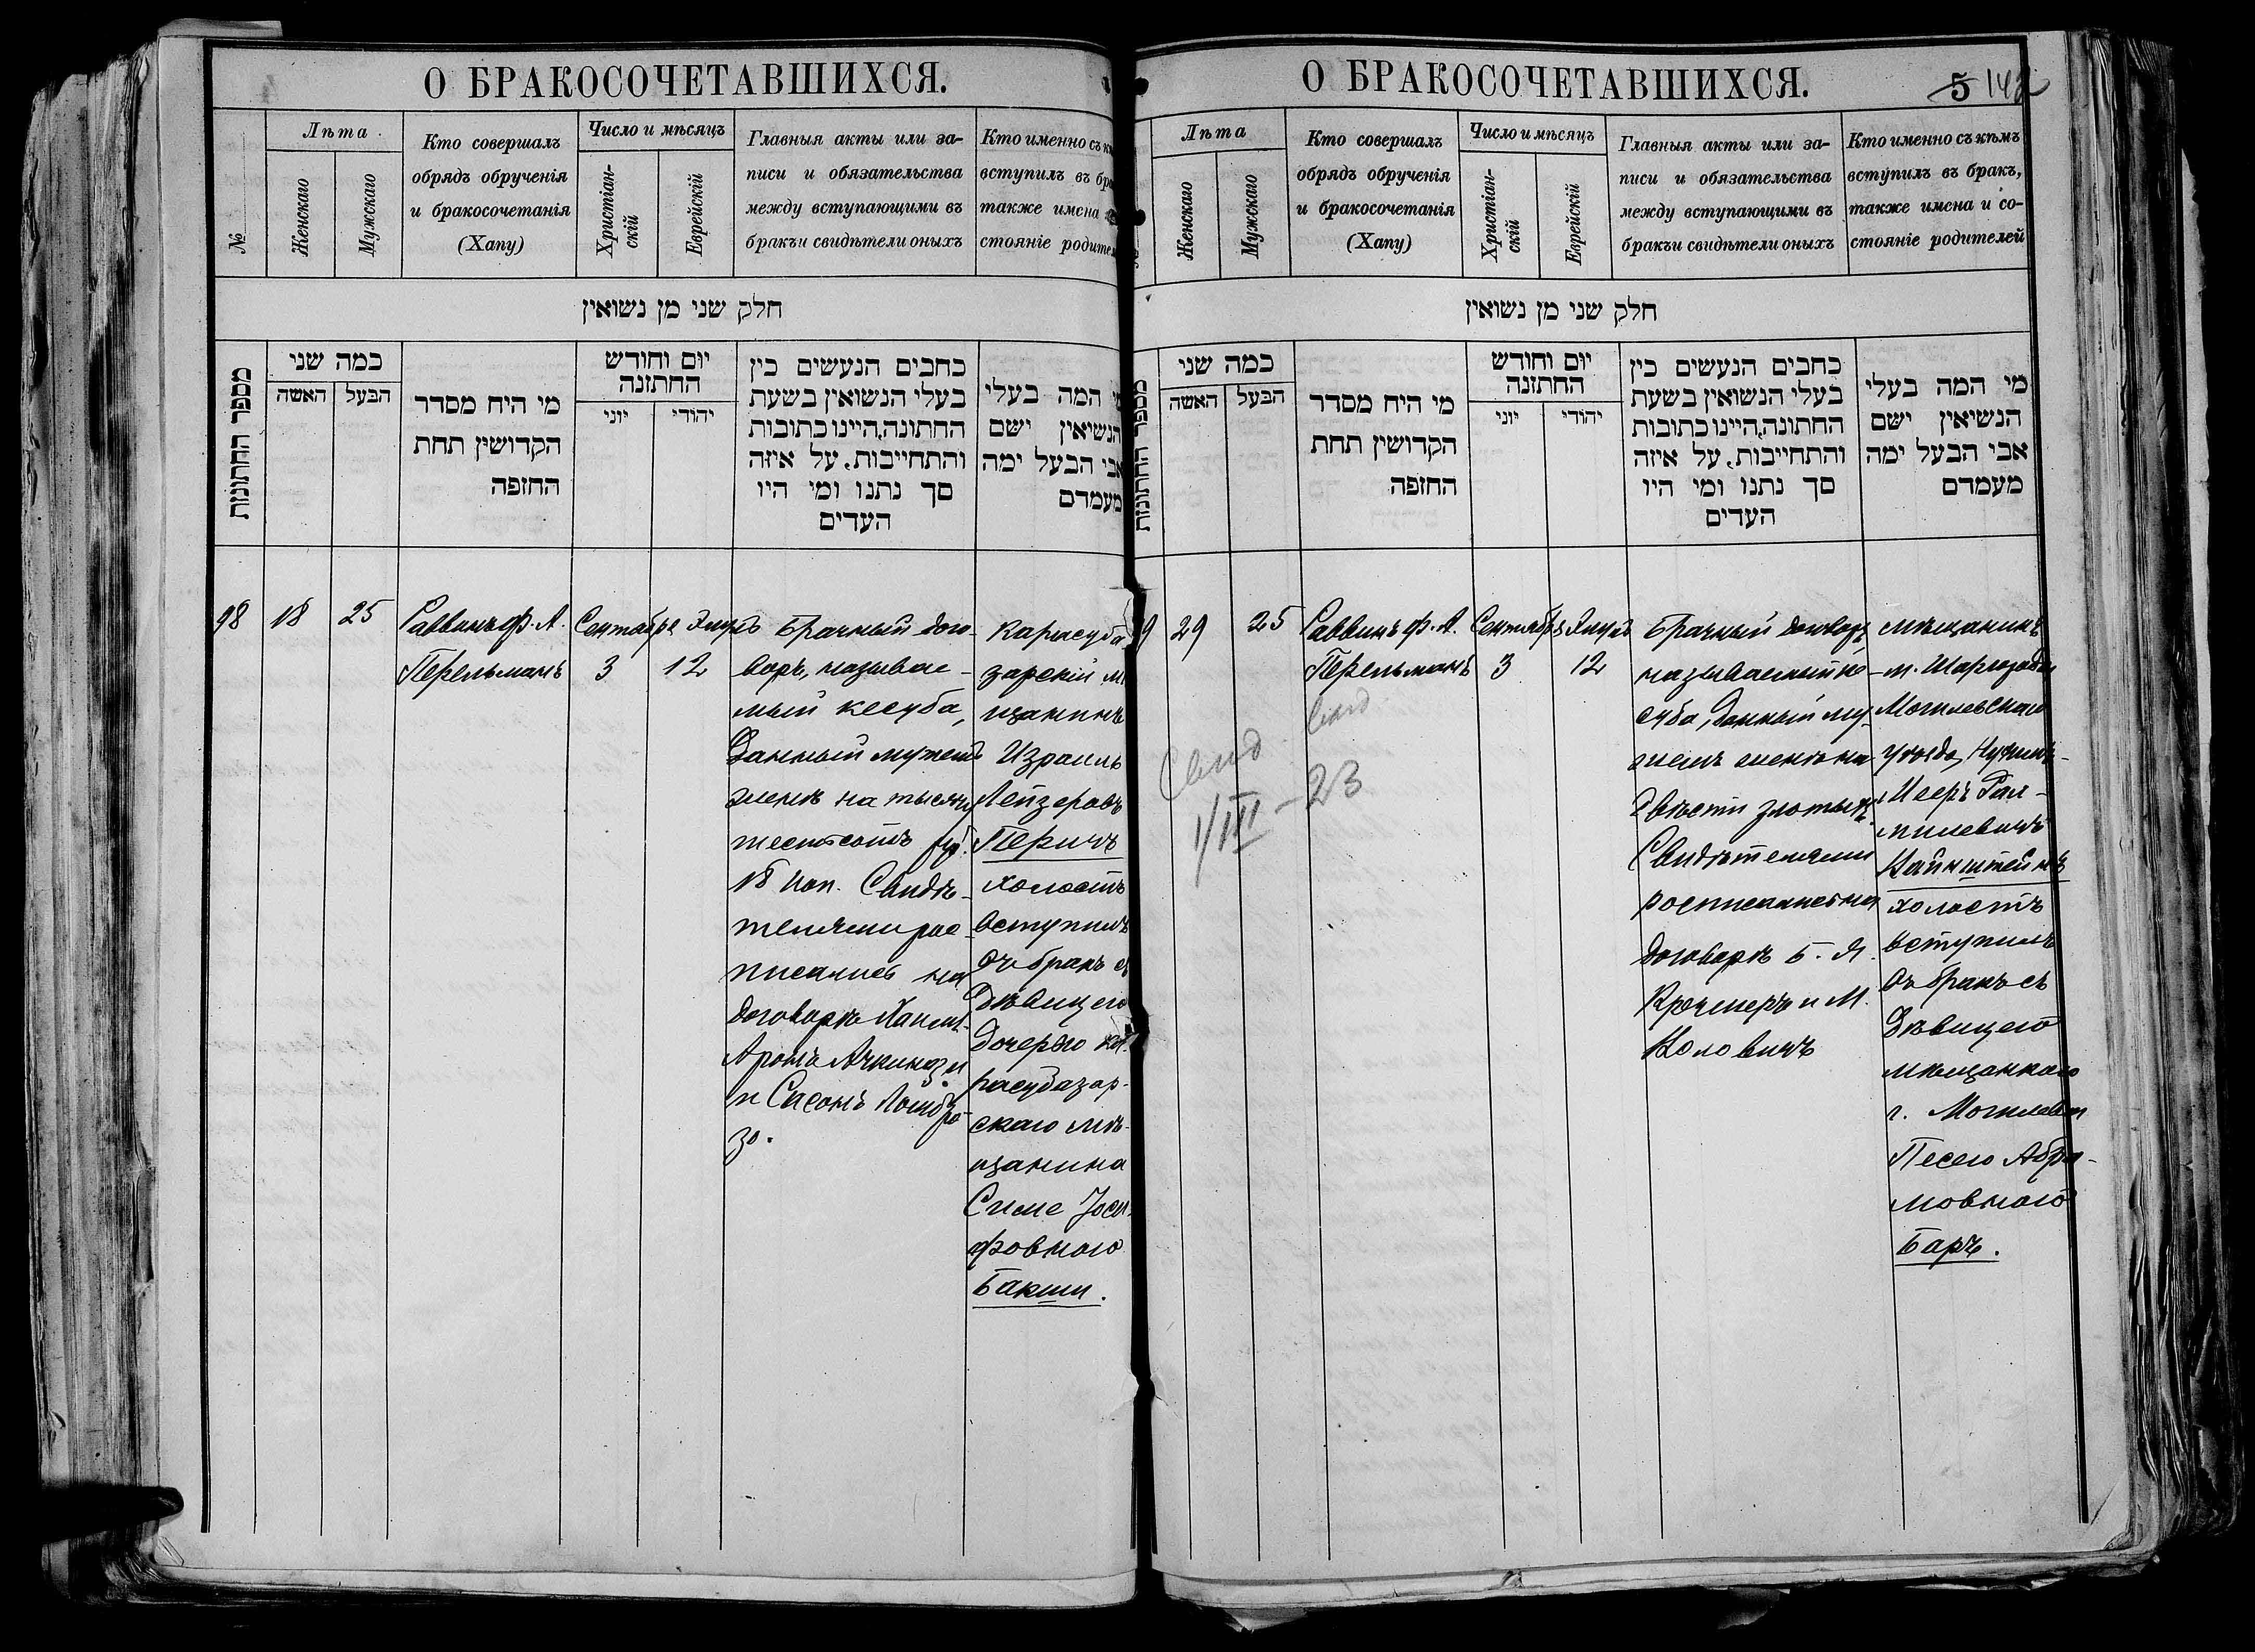 О БРАКОСОЧЕТАВШИХСЯ.
№
Лѣта
Женскаго
Мужскаго
Кто совершалъ
обрядъ обрученія
и бракосочетанія
(Хапу)
Число и мѣсяцъ
Христіан-
скій
Еврейскій
Главныя акты или за-
писи и обязательства
между вступающими въ
бракъи свидѣтели оныхъ
Кто именно съ
вступилъ въ
также имена
стояніе
חלק שני מן נשואין
מספר החתונות
כמה שני
האשה
הבעל
מי היח מסדר
הקדושין תחת
החזפה
יום וחודש
החתזנה
יוני
יהודי
כחבים הנעשים כין
בעלי הנשואין בשעת
החתונה,היינו כתובות
והתחייבות, על איזה
סך נתנו ומי היו
העדים
המה בעלי
הנשיאין ישם
אבי הבעל ימה
מעמדם
98
18
25
Раввинъ Ф. А.
Перельманъ
Сентября
3
Элулъ
12
Брачный дого-
воръ, называе-
мый кесуба,
данный мужемъ
женѣ на тысячу
шестьсотъ руб.
18 коп. Свидѣ-
телями рас-
писались на
договорѣ
Аронъ Ачкинази
и Сисонъ Ломбро-
зо.
Карасуба-
зарскій мѣ
щанинъ
Израиль
Лейзеровъ
Перичъ
холостъ
вступилъ
въ бракъ съ
дѣвицею
дочерью Ка-
расубазар-
скаго мѣ-
щанина
Симе Іоси-
фовною
Бакши.
О БРАКОСОЧЕТАВШИХСЯ.
5 142
Лѣта
Женскаго
Мужскаго
Кто совершалъ
обрядъ обрученія
и бракосочетанія
(Хапу)
Число и мѣсяцъ
Христіан-
скій
Еврейскій
Главныя акты или за-
писи и обязательства
между вступающими въ
бракъи свидѣтели оныхъ
Кто именно съ кѣмъ
вступилъ въ бракъ,
также имена и со-
стояніе родителей
חלק שני מן נשואין
מספר החתונות
כמה שני
האשה
הבעל
מי היח מסדר
הקדושין תחת
החזפה
יום וחודש
החתזנה
יוני
יהודי
כחבים הנעשים כין
בעלי הנשואין בשעת
החתונה,היינו כתובות
והתחייבות, על איזה
סך נתנו ומי היו
העדים
מי המה בעלי
הנשיאין ישם
אבי הבעל ימה
מעמדם
9
29
25
Раввинъ Ф. А.
Перельманъ
Сентябрь
3
Элулъ
12
Брачный договоръ
называемый ке-
суба, данный му-
жемъ женѣ на
двѣсти злотыхъ.
Свидѣтелями
росписались на
договорѣ Б. Я.
Кремеръ и М.
Коловичъ
мѣщанинъ
м. Шаргорода
Могилевскаго
уѣзда,
Мееръ
Вайнштейнъ
холостъ
вступилъ
въ бракъ съ
дѣвицею
мѣщанкою
г. Могилева
Песею Абра-
мовною
Баръ.
1/III - 23